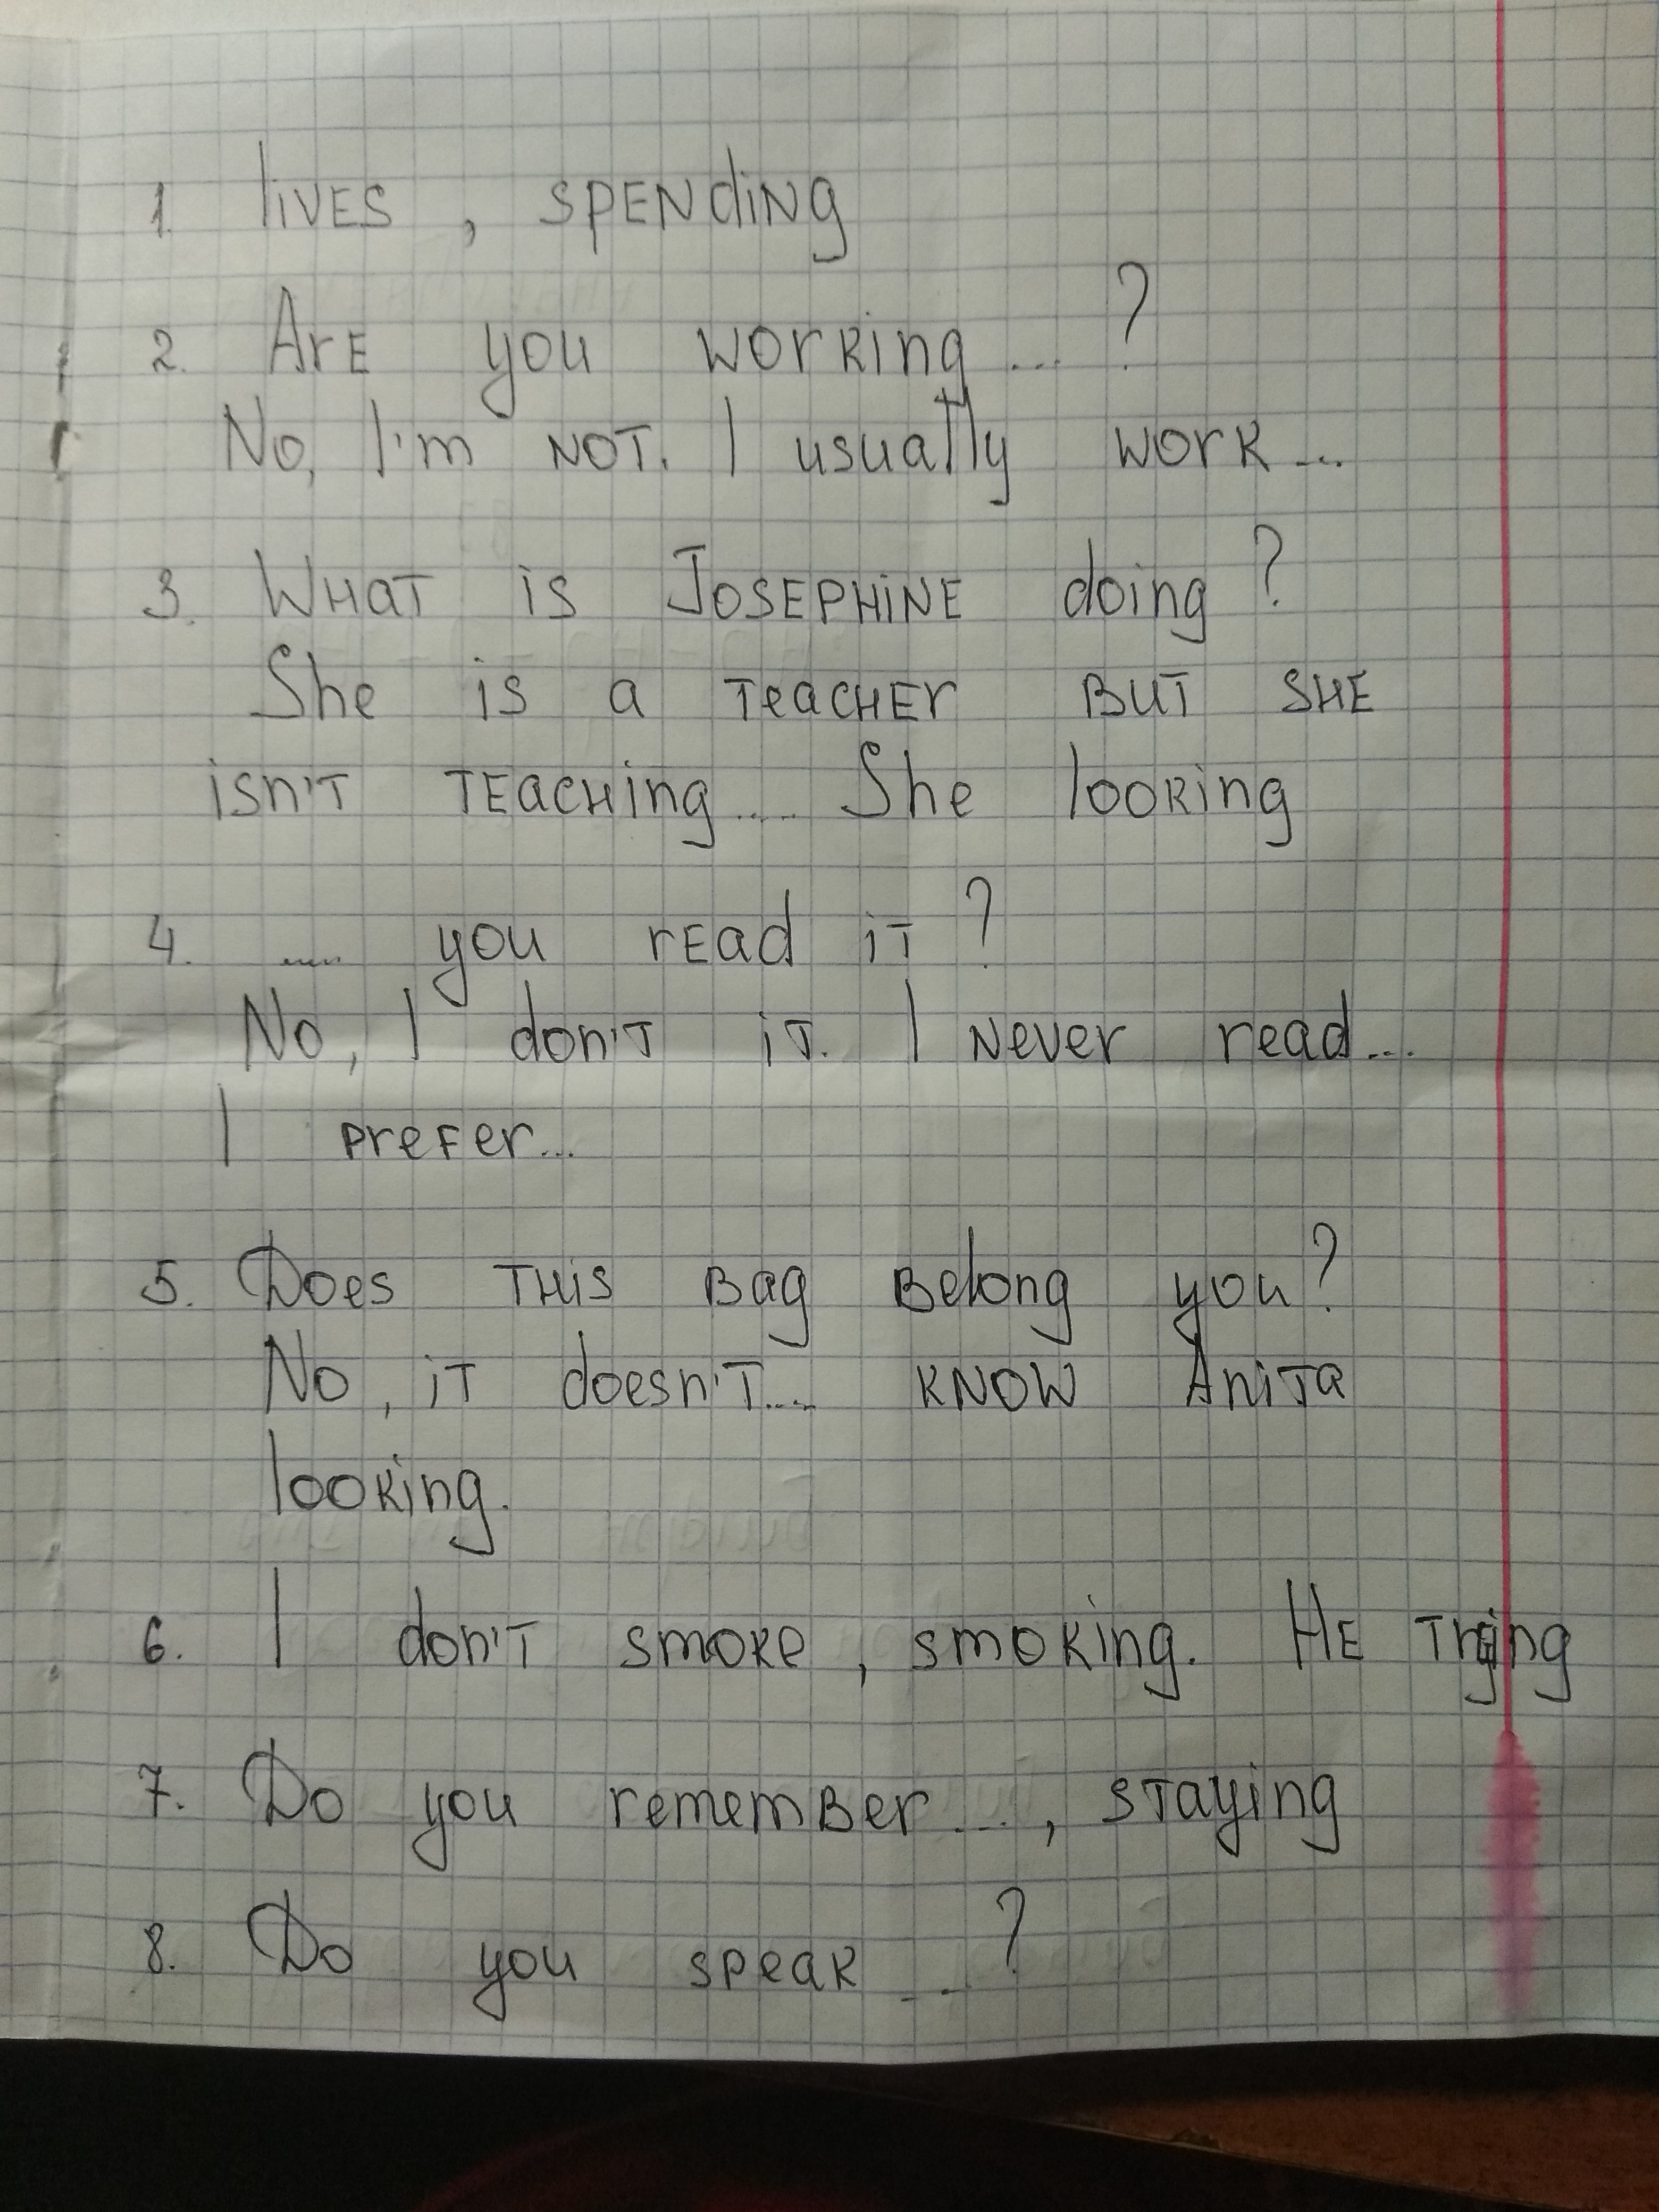 1. lives, spending
2. Are you working ... ?
No, I'm not. I usually work ...
3. What is Josephine doing?
She is a teacher but she
isn't teaching .... She looking
4. ..... you read it?
No, I don't it. I never read ...
I prefer ...
5. Does this bag belong you?
No, it doesn't .... know Anita
looking.
6. I don't smoke, smoking. He trying
7. Do you remember ...., staying
8. Do you speak ... ?